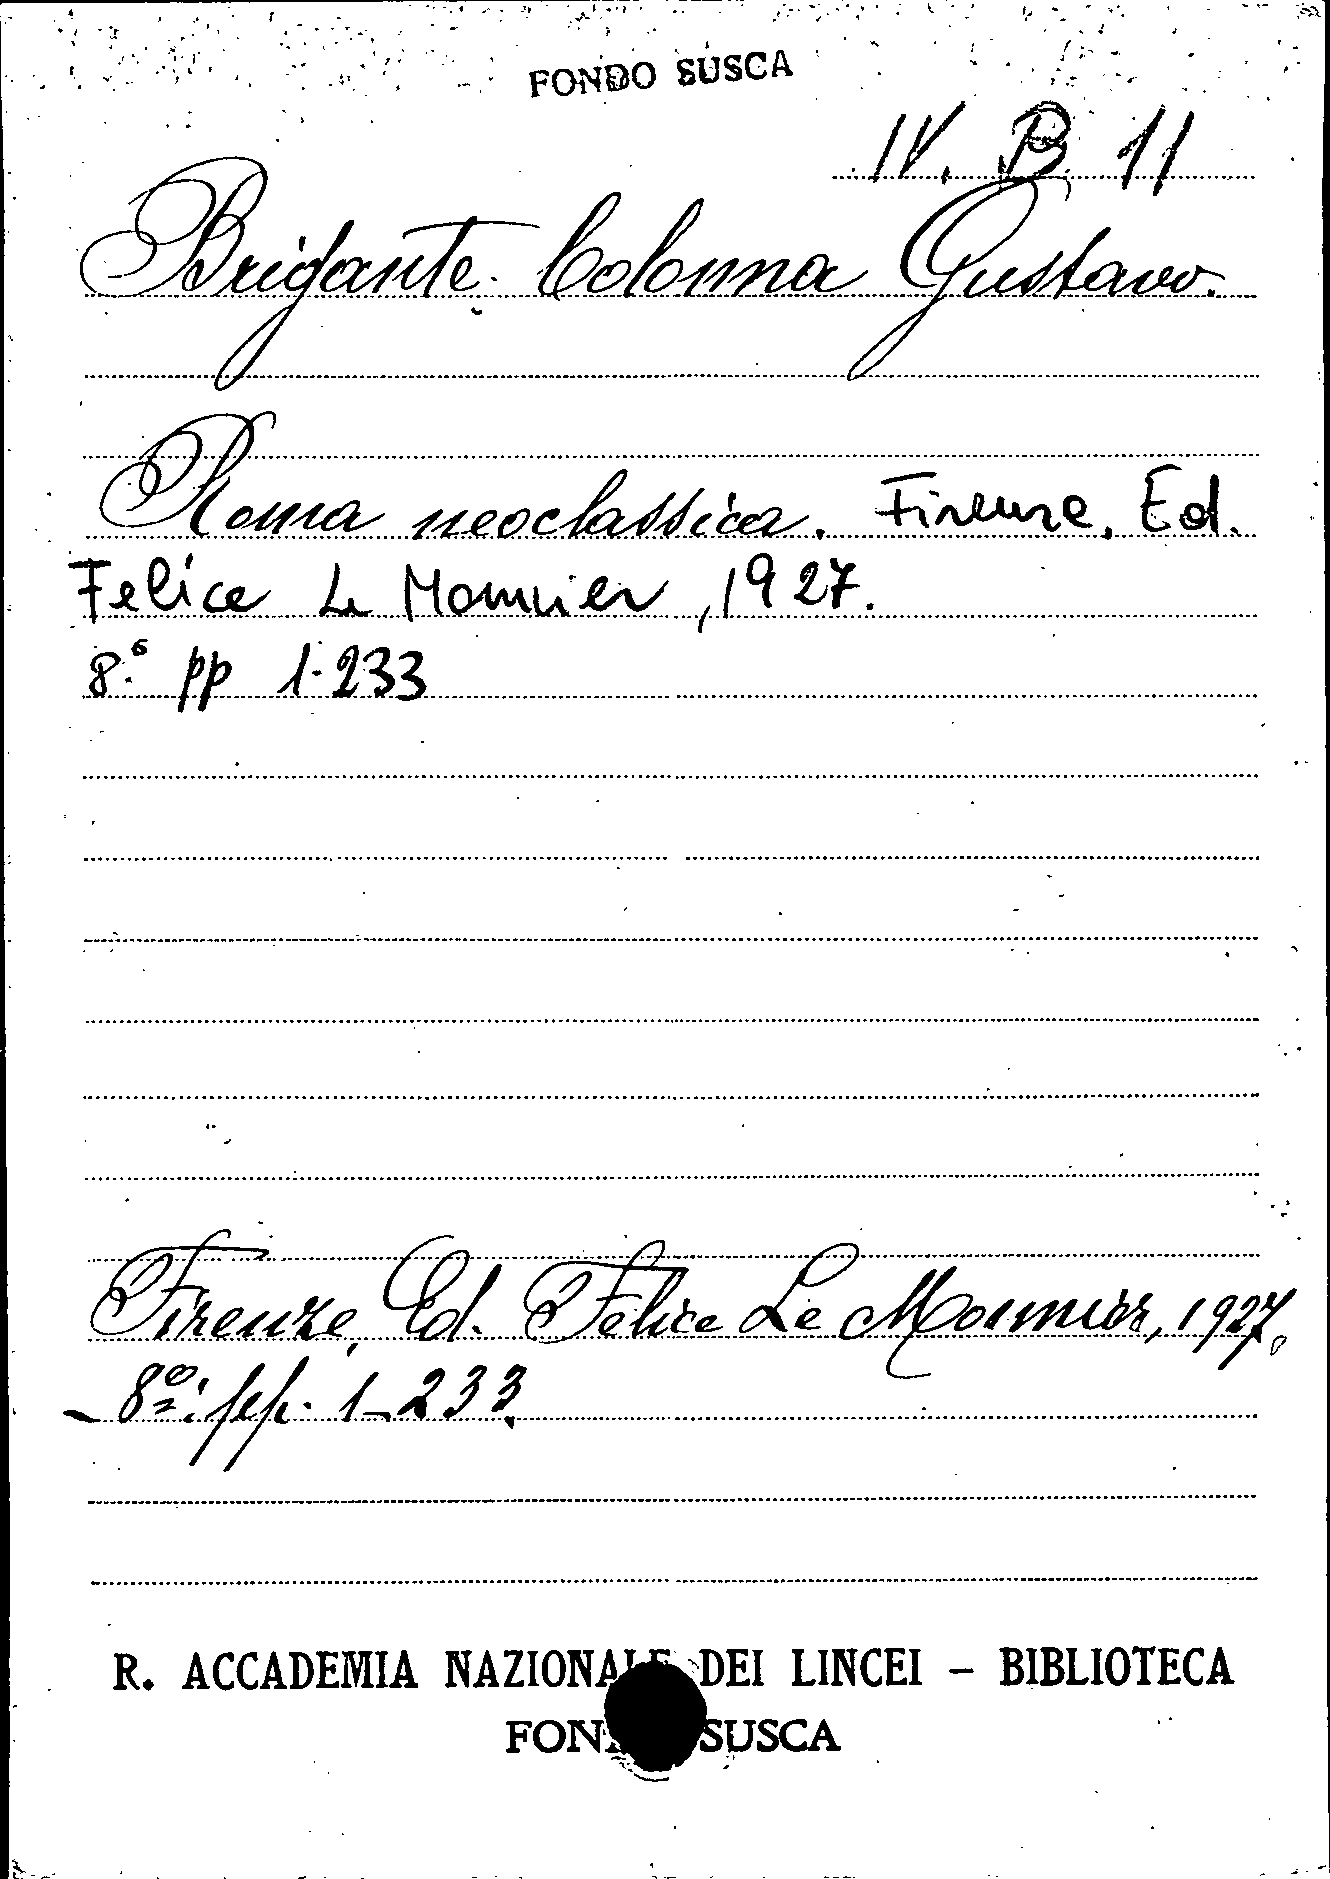 FONDO SUSCA
IV. B 11
Brigante Colonna Gustavo.
Roma neoclassica. Firenze, Ed.
Felice Le Monnier, 1927.
8.° pp 1-233
Firenze, Ed. Felice Le Monnier, 1927.
- 8º: pp. 1-233.
R. ACCADEMIA NAZIONALE DEI LINCEI - BIBLIOTECA
FONDO SUSCA